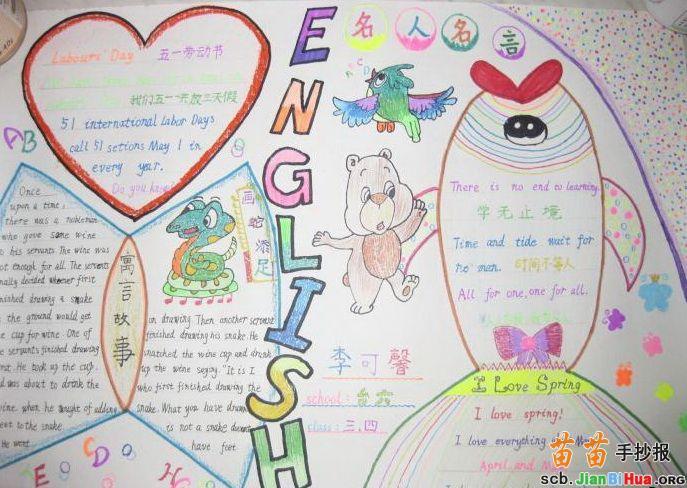 Labours' Day 五一劳动节
我们五一共放三天假
51 international Labor Days
call 51 setions May 1 in
every year.
Do you know
AB
ENGLISH
名人名言
BCD
There is no end to learning.
学无止境
Time and tide wait for
no man. 时间不等人
All for one, one for all.
画蛇添足
寓言故事
Once
upon a time,
there was a nobleman
who gave some wine
to his servants. The wine was
not enough for all. The servants
finally decided whoever first
finished drawing a snake
on the ground would get
the cup for wine. One of
the servants finished drawing
first. He took up the cup.
and was about to drink the
wine when he thought of adding
feet to the snake.
He went
on drawing. Then another servant
finished drawing his snake. He
snatched the wine cup and drank
up the wine saying. "It is I
who first finished drawing the
snake. What you have drawn
is not a snake
have feet
李可馨
school: 台六
class: 三.四
I Love Spring
I love spring!
I love everything
April, and
E C D
H G
苗苗手抄报
scb.JianBiHua.org